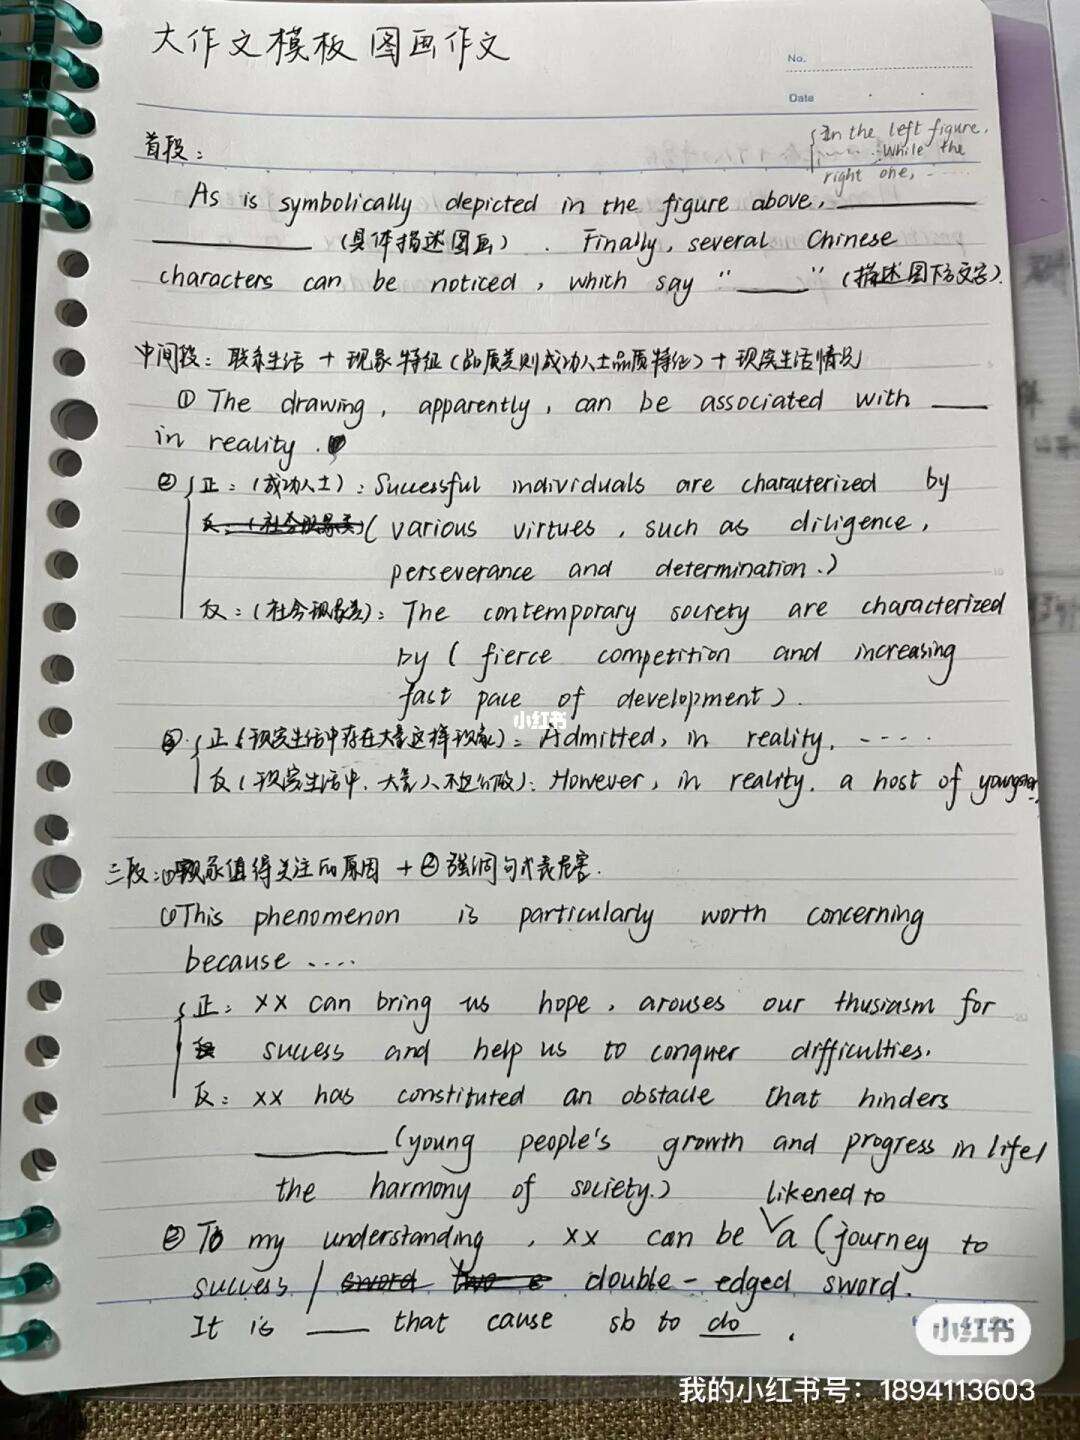 大作文模板 图画作文
No.
Date
首段:
{In the left figure,
..... ; while the
right one, ......
As is symbolically depicted in the figure above, ________
________ (具体描述图画) . Finally, several Chinese
characters can be noticed, which say "____" (描述图下方文字).
中间段: 联系生活 + 现象特征(品质类则成功人士品质特征) + 现实生活情况
① The drawing, apparently, can be associated with ____
in reality.
② { 正: (成功人士): Successful individuals are characterized by
反: (社会现象类) ( various virtues, such as diligence,
perseverance and determination.)
反: (社会现象类): The contemporary society are characterized
by ( fierce competition and increasing
fast pace of development).
小红书
③ { 正 (现实生活中存在大量这样现象): Admitted, in reality, .....
反 (现实生活中, 大量人不这么做): However, in reality, a host of youngster
三段: ①现象值得关注的原因 + ② 强调句代表危害.
① This phenomenon is particularly worth concerning
because ....
{ 正: xx can bring us hope, arouses our thusiasm for
success and help us to conquer difficulties.
反: xx has constituted an obstacle that hinders
________ (young people's growth and progress in life/
the harmony of society.)
likened to
② To my understanding, xx can be a (journey to
success / sword two e double-edged sword.
It is ____ that cause sb to do .
小红书
我的小红书号: 1894113603